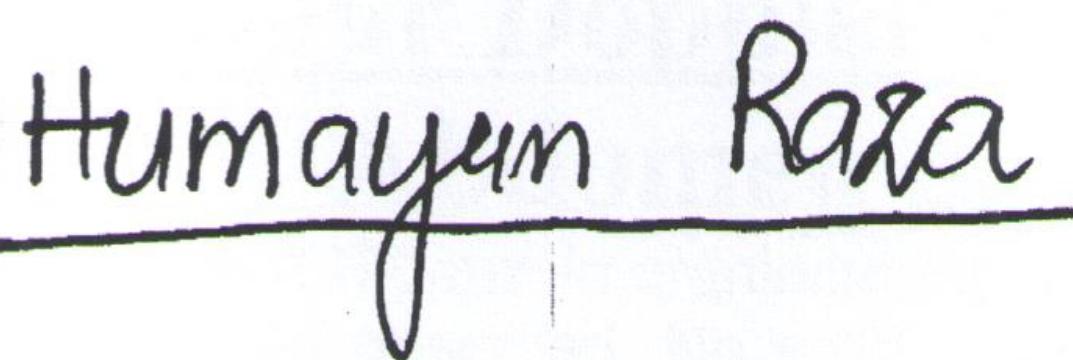 Humayun Raza